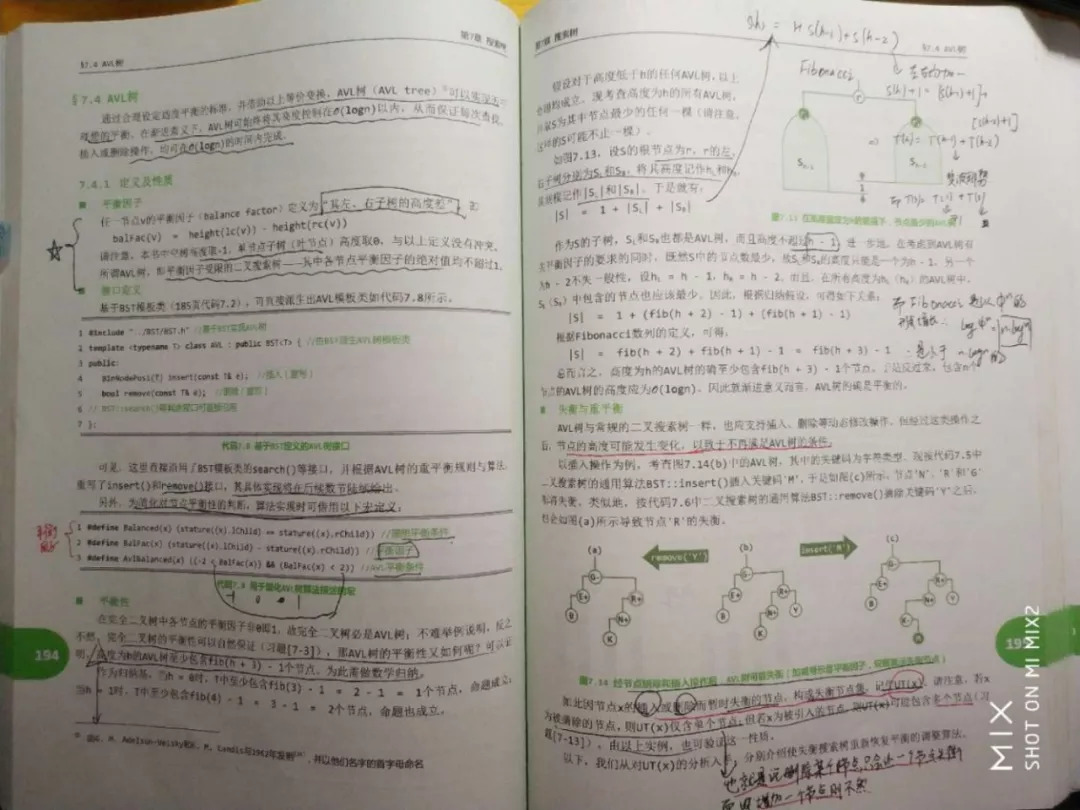 §7.4 AVL树
第7章 搜索树
§7.4 AVL树
通过合理设定适度平衡的标准,并借助以上等价变换,AVL树(AVL tree)可以实现近乎
理想的平衡。在渐进意义下,AVL树可始终将其高度控制在O(logn)以内,从而保证每次查找、
插入或删除操作,均可在O(logn)的时间内完成。
7.4.1 定义及性质
■ 平衡因子
任一节点v的平衡因子(balance factor)定义为“其左、右子树的高度差”,即
balFac(v) = height(lc(v)) - height(rc(v))
请注意,本书中空树高度取-1,单节点子树(叶节点)高度取0,与以上定义没有冲突。
所谓AVL树,即平衡因子受限的二叉搜索树——其中各节点平衡因子的绝对值均不超过1。
■ 接口定义
基于BST模板类(185页代码7.2),可直接派生出AVL模板类如代码7.8所示。
1 #include "../BST/BST.h" //基于BST实现AVL树
2 template <typename T> class AVL : public BST<T> { //由BST派生AVL树模板类
3 public:
4 BinNodePosi(T) insert(const T& e); //插入(重写)
5 bool remove(const T& e); //删除(重写)
6 // BST::search()等其余接口可直接沿用
7 };
代码7.8 基于BST定义的AVL树接口
可见,这里直接沿用了BST模板类的search()等接口,并根据AVL树的重平衡规则与算法,
重写了insert()和remove()接口,其具体实现将在后续数节陆续给出。
另外,为简化对节点平衡性的判断,算法实现时可借用以下宏定义:
平衡
1 #define Balanced(x) (stature((x).lChild) == stature((x).rChild)) //理想平衡条件
2 #define BalFac(x) (stature((x).lChild) - stature((x).rChild)) //平衡因子
3 #define AvlBalanced(x) ((-2 < BalFac(x)) && (BalFac(x) < 2)) //AVL平衡条件
代码7.9 用于简化AVL树算法描述的宏
-1 0 1
■ 平衡性
在完全二叉树中各节点的平衡因子非0即1,故完全二叉树必是AVL树;不难举例说明,反之
不然。完全二叉树的平衡性可以自然保证(习题[7-3]),那AVL树的平衡性又如何呢?可以证
明,高度为h的AVL树至少包含fib(h + 3) - 1个节点。为此需做数学归纳。
作为归纳基,当h = 0时,T中至少包含fib(3) - 1 = 2 - 1 = 1个节点,命题成立;
当h = 1时,T中至少包含fib(4) - 1 = 3 - 1 = 2个节点,命题也成立。
由G. M. Adelson-Velsky和E. M. Landis与1962年发明,并以他们名字的首字母命名
194
第7章 搜索树
§7.4 AVL树
S(h) = 1+ S(h-1)+S(h-2)
Fibonacci
S(h)+1 =
T(h) = T(h-1) + T(h-2)
假设对于高度低于h的任何AVL树,以上
命题均成立。现考查高度为h的所有AVL树,
并取S为其中节点最少的任何一棵(请注意,
这样的S可能不止一棵)。
如图7.13,设S的根节点为r,r的左、
右子树分别为SL和SR,将其高度记作hL和hR,
其规模记作|SL|和|SR|。于是就有:
|S| = 1 + |SL| + |SR|
图7.13 在高度固定为h的前提下,节点最少的AVL树
作为S的子树,SL和SR也都是AVL树,而且高度不超过h - 1。进一步地,在考虑到AVL树有
关平衡因子的要求的同时,既然S中的节点数最少,故SL和SR的高度只能是一个为h - 1,另一个
为h - 2。不失一般性,设hL = h - 1,hR = h - 2。而且,在所有高度为hL(hR)的AVL树中,
SL(SR)中包含的节点也应该最少。因此,根据归纳假设,可得如下关系:
|S| = 1 + (fib(h + 2) - 1) + (fib(h + 1) - 1)
根据Fibonacci数列的定义,可得:
|S| = fib(h + 2) + fib(h + 1) - 1 = fib(h + 3) - 1
总而言之,高度为h的AVL树的确至少包含fib(h + 3) - 1个节点。于是反过来,包含n个
节点的AVL树的高度应为O(logn)。因此就渐进意义而言,AVL树的确是平衡的。
而Fibonacci是以Φⁿ的
■ 失衡与重平衡
AVL树与常规的二叉搜索树一样,也应支持插入、删除等动态修改操作。但经过这类操作之
后,节点的高度可能发生变化,以致于不再满足AVL树的条件。
以插入操作为例,考查图7.14(b)中的AVL树,其中的关键码为字符类型。现按代码7.5中
二叉搜索树的通用算法BST::insert()插入关键码'M',于是如图(c)所示,节点'N'、'R'和'G'
都将失衡。类似地,按代码7.6中二叉搜索树的通用算法BST::remove()摘除关键码'Y'之后,
也会如图(a)所示导致节点'R'的失衡。
(a) remove('Y') (b) insert('M') (c)
G- E+ R+ B N+ K
G- E+ R+ B N+ Y K
G- E+ R+ B N+ Y K- M
图7.14 经节点删除和插入操作后,AVL树可能失衡(加减号形容平衡因子,双圈表示失衡节点)
如此因节点x的插入或删除而暂时失衡的节点,构成失衡节点集,记作UT(x)。请注意,若x
为被摘除的节点,则UT(x)仅含单个节点;但若x为被引入的节点,则UT(x)可能包含多个节点(习
题[7-13])。由以上实例,也可验证这一性质。
以下,我们从对UT(x)的分析入手,分别介绍使失衡搜索树重新恢复平衡的调整算法。
也就是说删除某个节点只会让一个节点失衡
而增加一个节点则不然
195
MIX
SHOT ON MI MIX2